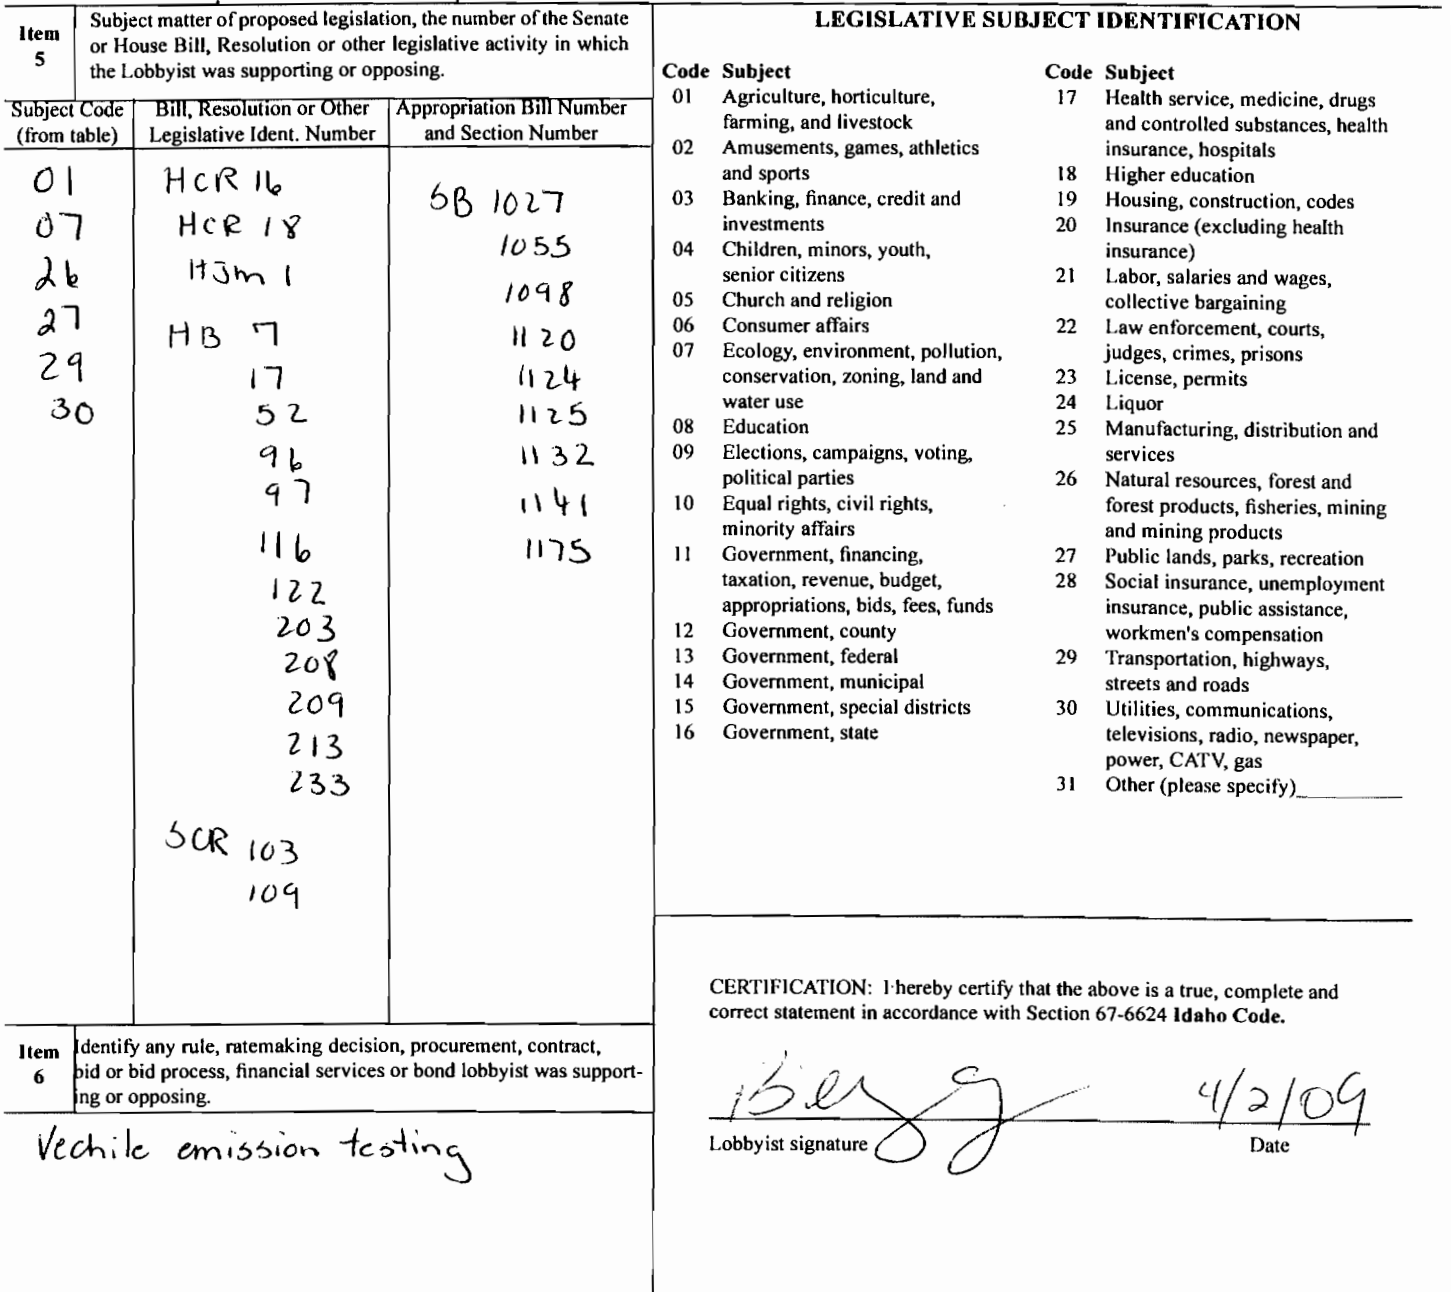 Item
5
Subject matter of proposed legislation, the number of the Senate
or House Bill, Resolution or other legislative activity in which
the Lobbyist was supporting or opposing.
Subject Code
(from table)
Bill, Resolution or Other
Legislative Ident. Number
Appropriation Bill Number
and Section Number
01
07
26
27
29
30
HCR 16
HCR 18
HJm 1
HB 7
17
52
96
97
116
122
203
208
209
213
233
SCR 103
109
SB 1027
1055
1098
1120
1124
1125
1132
1141
1175
Item
6
Identify any rule, ratemaking decision, procurement, contract,
bid or bid process, financial services or bond lobbyist was support-
ing or opposing.
Vechile emission testing
LEGISLATIVE SUBJECT IDENTIFICATION
Code Subject
01 Agriculture, horticulture,
farming, and livestock
02 Amusements, games, athletics
and sports
03 Banking, finance, credit and
investments
04 Children, minors, youth,
senior citizens
05 Church and religion
06 Consumer affairs
07 Ecology, environment, pollution,
conservation, zoning, land and
water use
08 Education
09 Elections, campaigns, voting,
political parties
10 Equal rights, civil rights,
minority affairs
11 Government, financing,
taxation, revenue, budget,
appropriations, bids, fees, funds
12 Government, county
13 Government, federal
14 Government, municipal
15 Government, special districts
16 Government, state
Code Subject
17 Health service, medicine, drugs
and controlled substances, health
insurance, hospitals
18 Higher education
19 Housing, construction, codes
20 Insurance (excluding health
insurance)
21 Labor, salaries and wages,
collective bargaining
22 Law enforcement, courts,
judges, crimes, prisons
23 License, permits
24 Liquor
25 Manufacturing, distribution and
services
26 Natural resources, forest and
forest products, fisheries, mining
and mining products
27 Public lands, parks, recreation
28 Social insurance, unemployment
insurance, public assistance,
workmen's compensation
29 Transportation, highways,
streets and roads
30 Utilities, communications,
televisions, radio, newspaper,
power, CATV, gas
31 Other (please specify)
CERTIFICATION: I hereby certify that the above is a true, complete and
correct statement in accordance with Section 67-6624 Idaho Code.
4/2/09
Lobbyist signature
Date